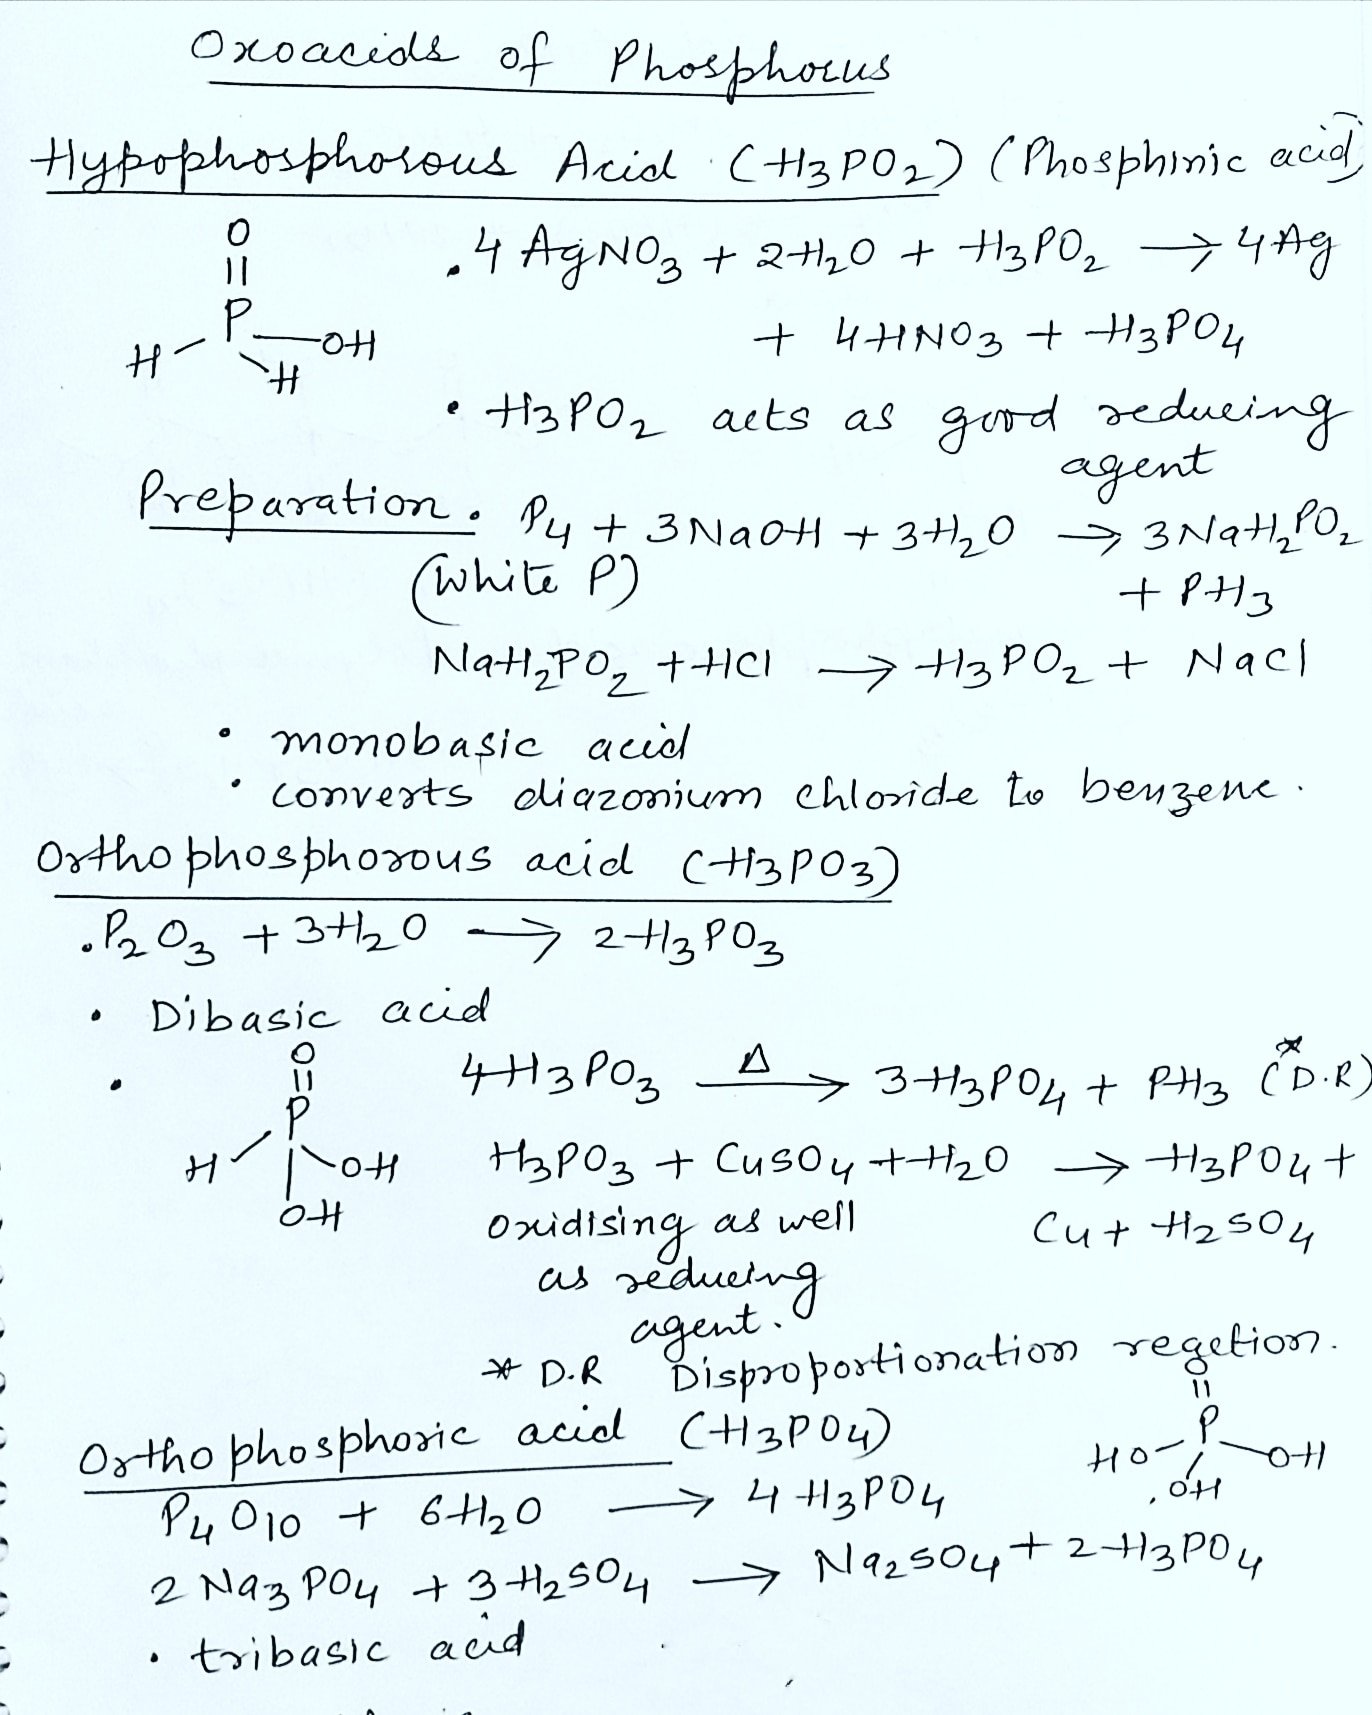 Oxoacids of Phosphorus
Hypophosphorous Acid (H3PO2) (Phosphinic acid)
O
||
P
H OH
H
. 4 AgNO3 + 2H2O + H3PO2 → 4Ag
+ 4HNO3 + H3PO4
• H3PO2 acts as good reducing
agent
Preparation. P4 + 3NaOH + 3H2O → 3NaH2PO2
(White P) + PH3
NaH2PO2 + HCl → H3PO2 + NaCl
• monobasic acid
• converts diazonium chloride to benzene.
Orthophosphorous acid (H3PO3)
. P2O3 + 3H2O → 2H3PO3
• Dibasic acid
• 4H3PO3 Δ→ 3H3PO4 + PH3 (*D.R)
O
||
P
H OH
OH
H3PO3 + CuSO4 + H2O → H3PO4 +
oxidising as well Cu + H2SO4
as reducing
agent.
* D.R Disproportionation reaction.
Orthophosphoric acid (H3PO4)
||
P
HO OH
OH
P4O10 + 6H2O → 4 H3PO4
2 Na3PO4 + 3H2SO4 → Na2SO4 + 2H3PO4
• tribasic acid